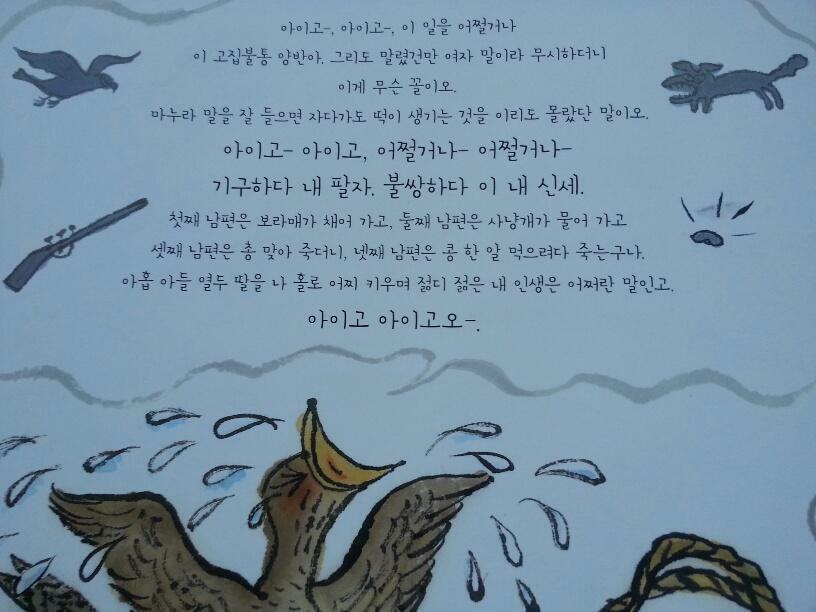 아이고-, 아이고-, 이 일을 어쩔거나
이 고집불통 양반아. 그리도 말렸건만 여자 말이라 무시하더니
이게 무슨 꼴이오.
마누라 말을 잘 들으면 자다가도 떡이 생기는 것을 이리도 몰랐단 말이오.
아이고- 아이고, 어쩔거나- 어쩔거나-
기구하다 내 팔자. 불쌍하다 이 내 신세.
첫째 남편은 보라매가 채어 가고, 둘째 남편은 사냥개가 물어 가고
셋째 남편은 총 맞아 죽더니, 넷째 남편은 콩 한 알 먹으려다 죽는구나.
아홉 아들 열두 딸을 나 홀로 어찌 키우며 젊디 젊은 내 인생은 어쩌란 말인고.
아이고 아이고오-.